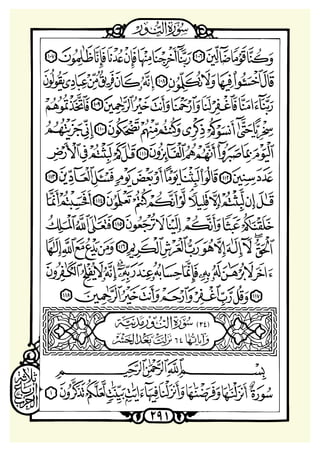 سُورَةُ النُّورِ
وَكُنَّا قَوْمًا ضَآلِّينَ ١٠٦ رَبَّنَآ أَخْرِجْنَا مِنْهَا فَإِنْ عُدْنَا فَإِنَّا ظَٰلِمُونَ ١٠٧
قَالَ ٱخْسَـُٔوا۟ فِيهَا وَلَا تُكَلِّمُونِ ١٠٨ إِنَّهُۥ كَانَ فَرِيقٌ مِّنْ عِبَادِى يَقُولُونَ
رَبَّنَآ ءَامَنَّا فَٱغْفِرْ لَنَا وَٱرْحَمْنَا وَأَنتَ خَيْرُ ٱلرَّٰحِمِينَ ١٠٩ فَٱتَّخَذْتُمُوهُمْ
سِخْرِيًّا حَتَّىٰٓ أَنسَوْكُمْ ذِكْرِى وَكُنتُم مِّنْهُمْ تَضْحَكُونَ ١١٠ إِنِّى جَزَيْتُهُمُ
ٱلْيَوْمَ بِمَا صَبَرُوٓا۟ أَنَّهُمْ هُمُ ٱلْفَآئِزُونَ ١١١ قَٰلَ كَمْ لَبِثْتُمْ فِى ٱلْأَرْضِ
عَدَدَ سِنِينَ ١١٢ قَالُوا۟ لَبِثْنَا يَوْمًا أَوْ بَعْضَ يَوْمٍ فَسْـَٔلِ ٱلْعَآدِّينَ ١١٣
قَٰلَ إِن لَّبِثْتُمْ إِلَّا قَلِيلًا لَّوْ أَنَّكُمْ كُنتُمْ تَعْلَمُونَ ١١٤ أَفَحَسِبْتُمْ أَنَّمَا
خَلَقْنَٰكُمْ عَبَثًا وَأَنَّكُمْ إِلَيْنَا لَا تُرْجَعُونَ ١١٥ فَتَعَٰلَى ٱللَّهُ ٱلْمَلِكُ
ٱلْحَقُّ لَآ إِلَٰهَ إِلَّا هُوَ رَبُّ ٱلْعَرْشِ ٱلْكَرِيمِ ١١٦ وَمَن يَدْعُ مَعَ ٱللَّهِ إِلَٰهًا
ءَاخَرَ لَا بُرْهَٰنَ لَهُۥ بِهِۦ فَإِنَّمَا حِسَابُهُۥ عِندَ رَبِّهِۦٓ إِنَّهُۥ لَا يُفْلِحُ ٱلْكَٰفِرُونَ
١١٧ وَقُل رَّبِّ ٱغْفِرْ وَٱرْحَمْ وَأَنتَ خَيْرُ ٱلرَّٰحِمِينَ ١١٨
(٢٤) سورة النور مدنية
وآياتها ٦٤ نزلت بعد الحشر
بِسْمِ ٱللَّهِ ٱلرَّحْمَٰنِ ٱلرَّحِيمِ
سُورَةٌ أَنزَلْنَٰهَا وَفَرَضْنَٰهَا وَأَنزَلْنَا فِيهَآ ءَايَٰتٍۭ بَيِّنَٰتٍ لَّعَلَّكُمْ تَذَكَّرُونَ ١
٣٩١